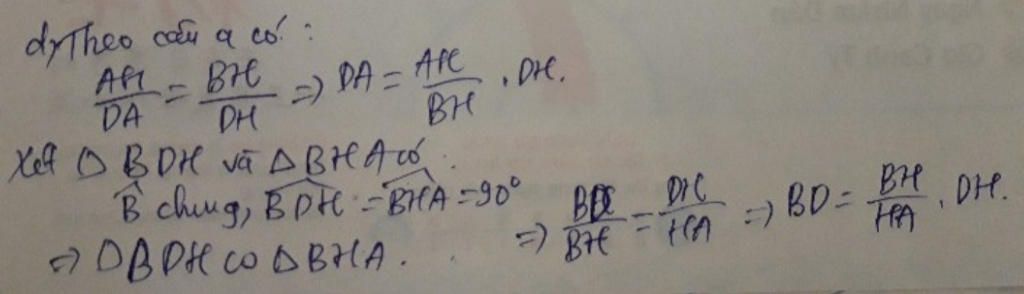 d, Theo câu a có:
AH/DA = BH/DH => DA = AH/BH . DH.
Xét △ BDH và △ BHA có:
B̂ chung, BDH = BHA = 90°
=> △BDH ∽ △BHA.
=> BD/BH = DH/HA => BD = BH/HA . DH.